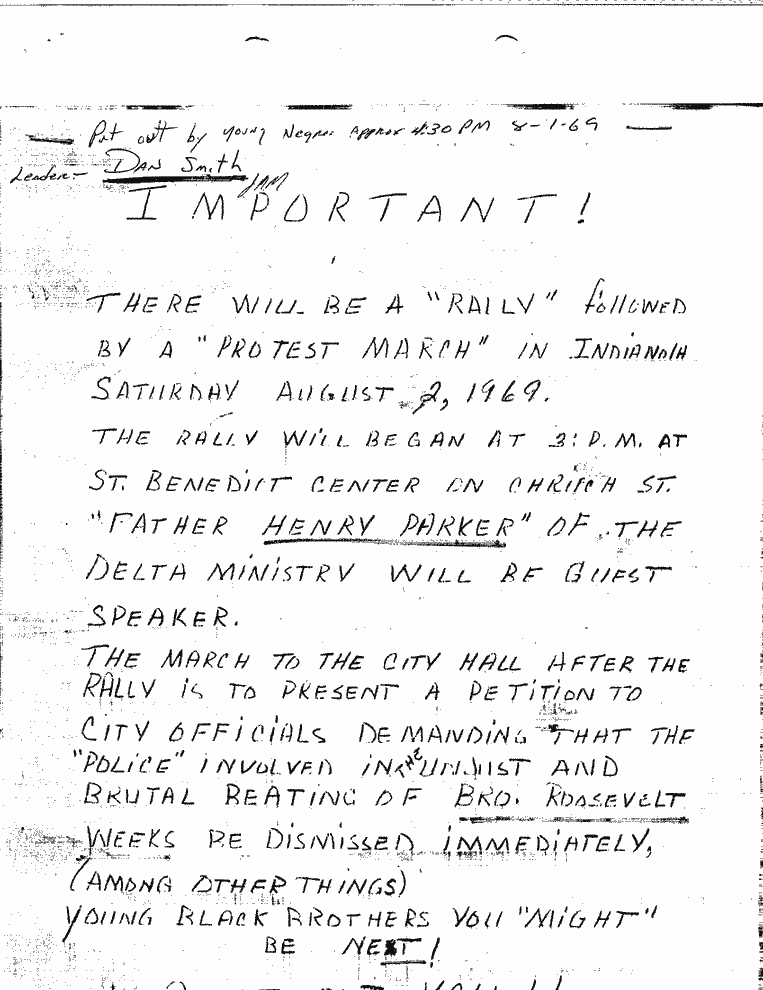 Put out by young Negroes Approx 4:30 PM 8-1-69
Leader- Dan Smith
IMPORTANT!
THERE WILL BE A "RALLY" followED
BY A "PROTEST MARCH" IN INDIANOLA
SATURDAY AUGUST 2, 1969.
THE RALLY WILL BEGAN AT 3: P.M. AT
ST. BENEDICT CENTER ON CHURCH ST.
"FATHER HENRY PARKER" OF THE
DELTA MINISTRY WILL BE GUEST
SPEAKER.
THE MARCH TO THE CITY HALL AFTER THE
RALLY IS TO PRESENT A PETITION TO
CITY OFFICIALS DEMANDING THAT THE
"POLICE" INVOLVED IN THE UNJUST AND
BRUTAL BEATING OF BRO. ROOSEVELT
WEEKS BE DISMISSED IMMEDIATELY,
(AMONG OTHER THINGS)
YOUNG BLACK BROTHERS YOU "MIGHT"
BE NEXT!